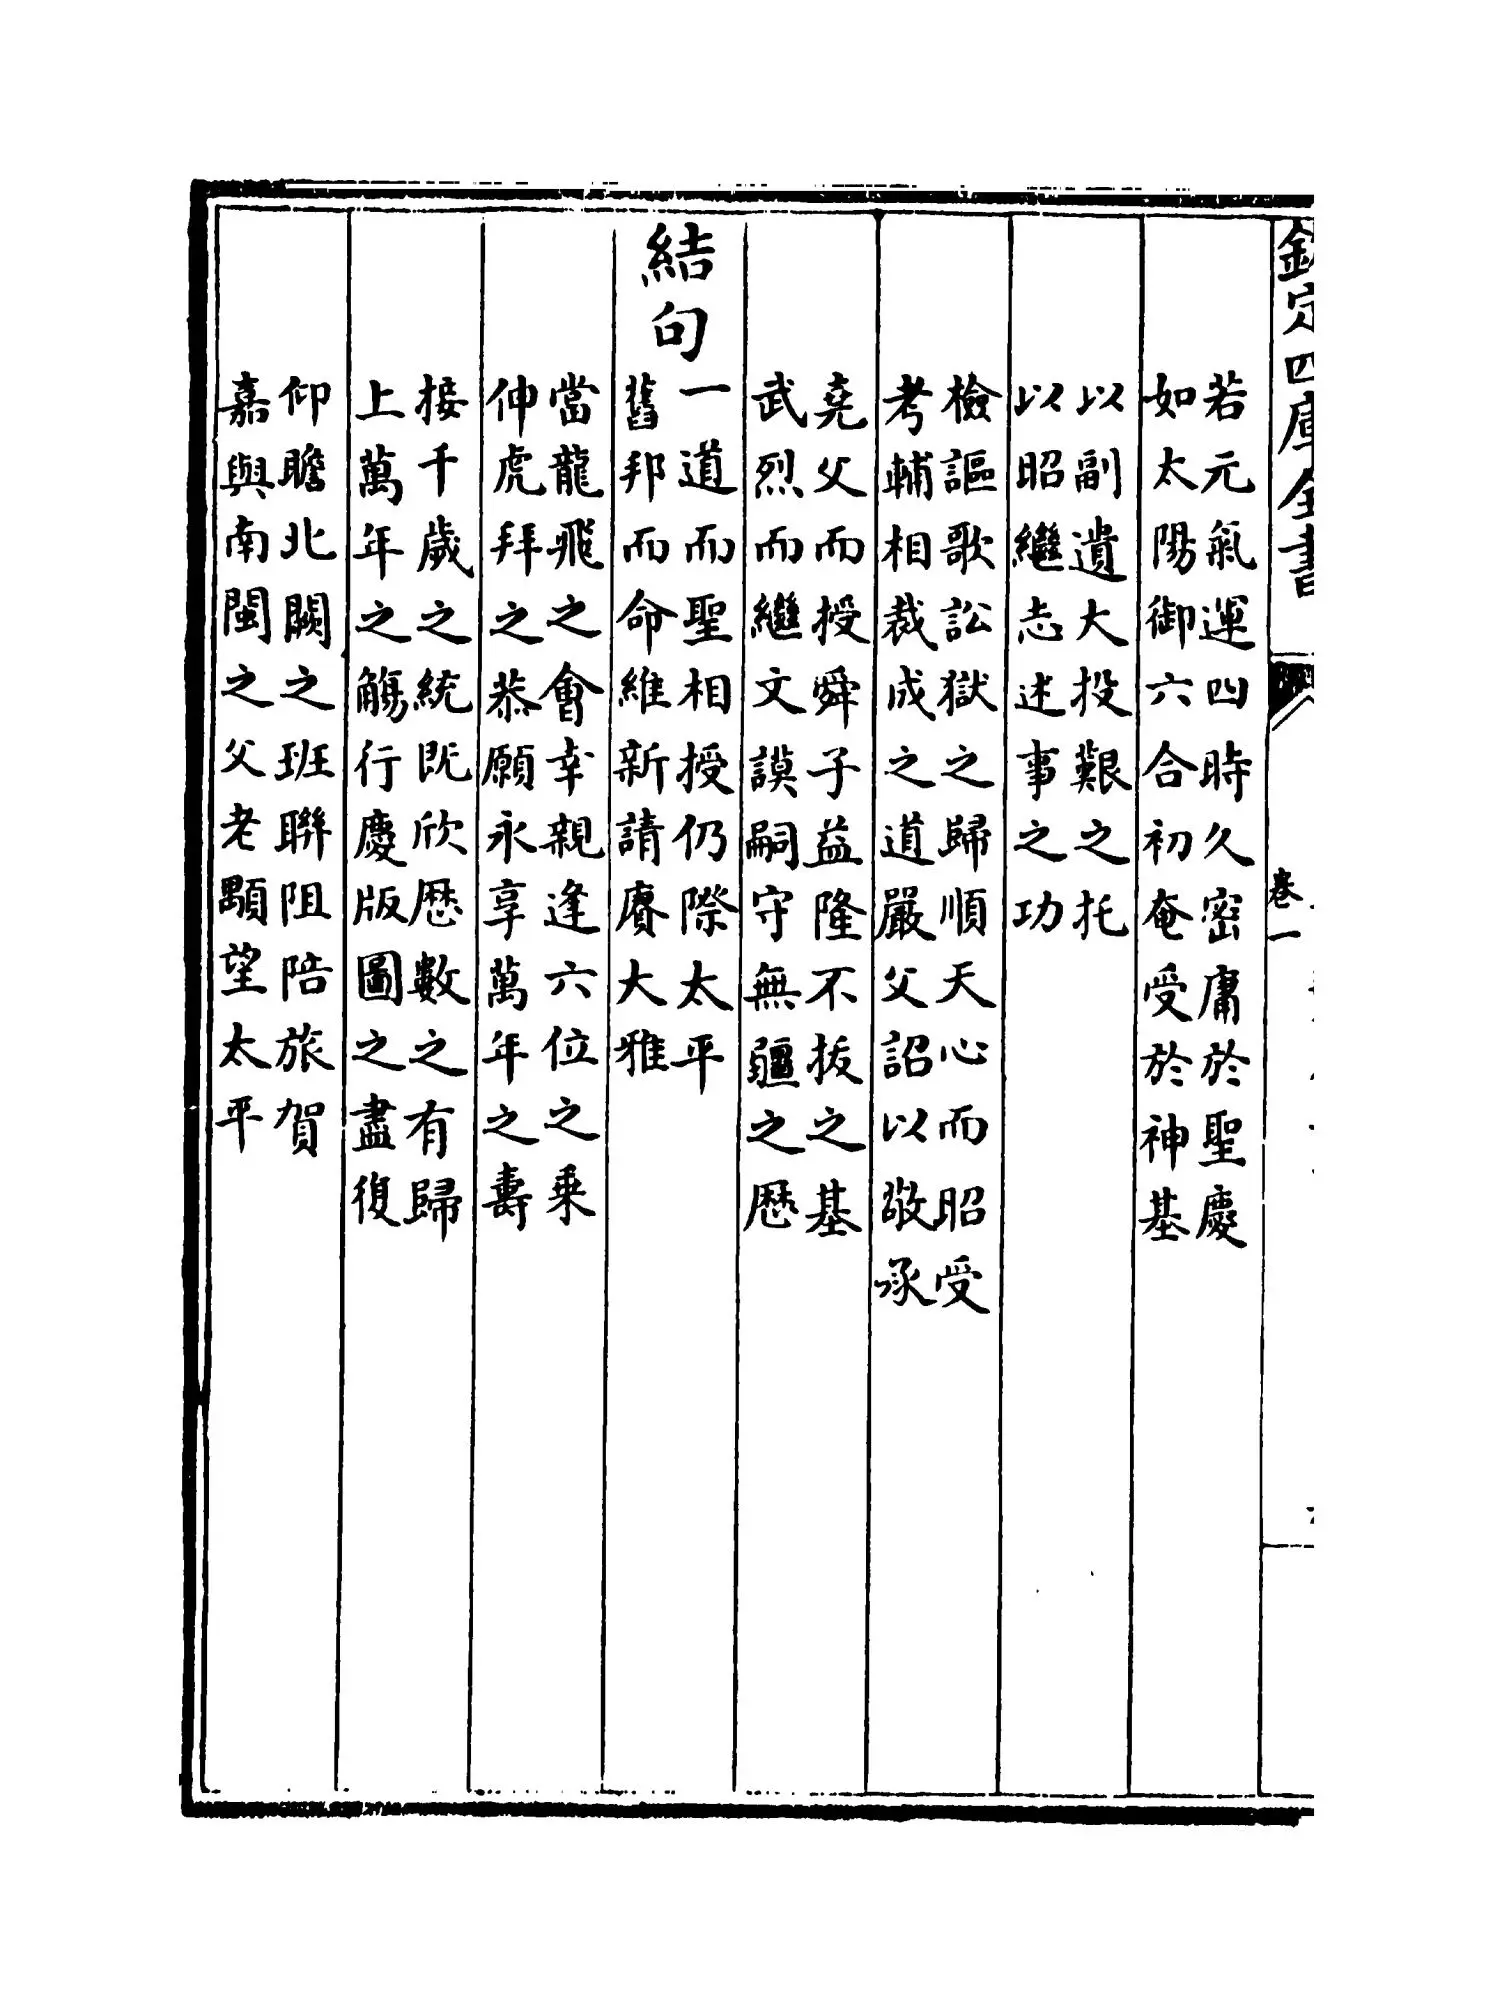 欽定四庫全書
卷一
若元氣運四時久密庸於聖慶
如太陽御六合初奄受於神基
以副遺大投艱之托
以昭繼志述事之功
檢謳歌訟獄之歸順天心而昭受
考輔相裁成之道嚴父詔以敬承
堯父而授舜子益隆不拔之基
武烈而繼文謨嗣守無疆之歴
結句
一道而聖相授仍際太平
舊邦而命維新請賡大雅
當龍飛之會幸親逢六位之乗
伸虎拜之恭願永享萬年之壽
接千歲之統既欣歴數之有歸
上萬年之觴行慶版圖之盡復
仰瞻北闕之班聯阻陪旅賀
嘉與南閩之父老顒望太平